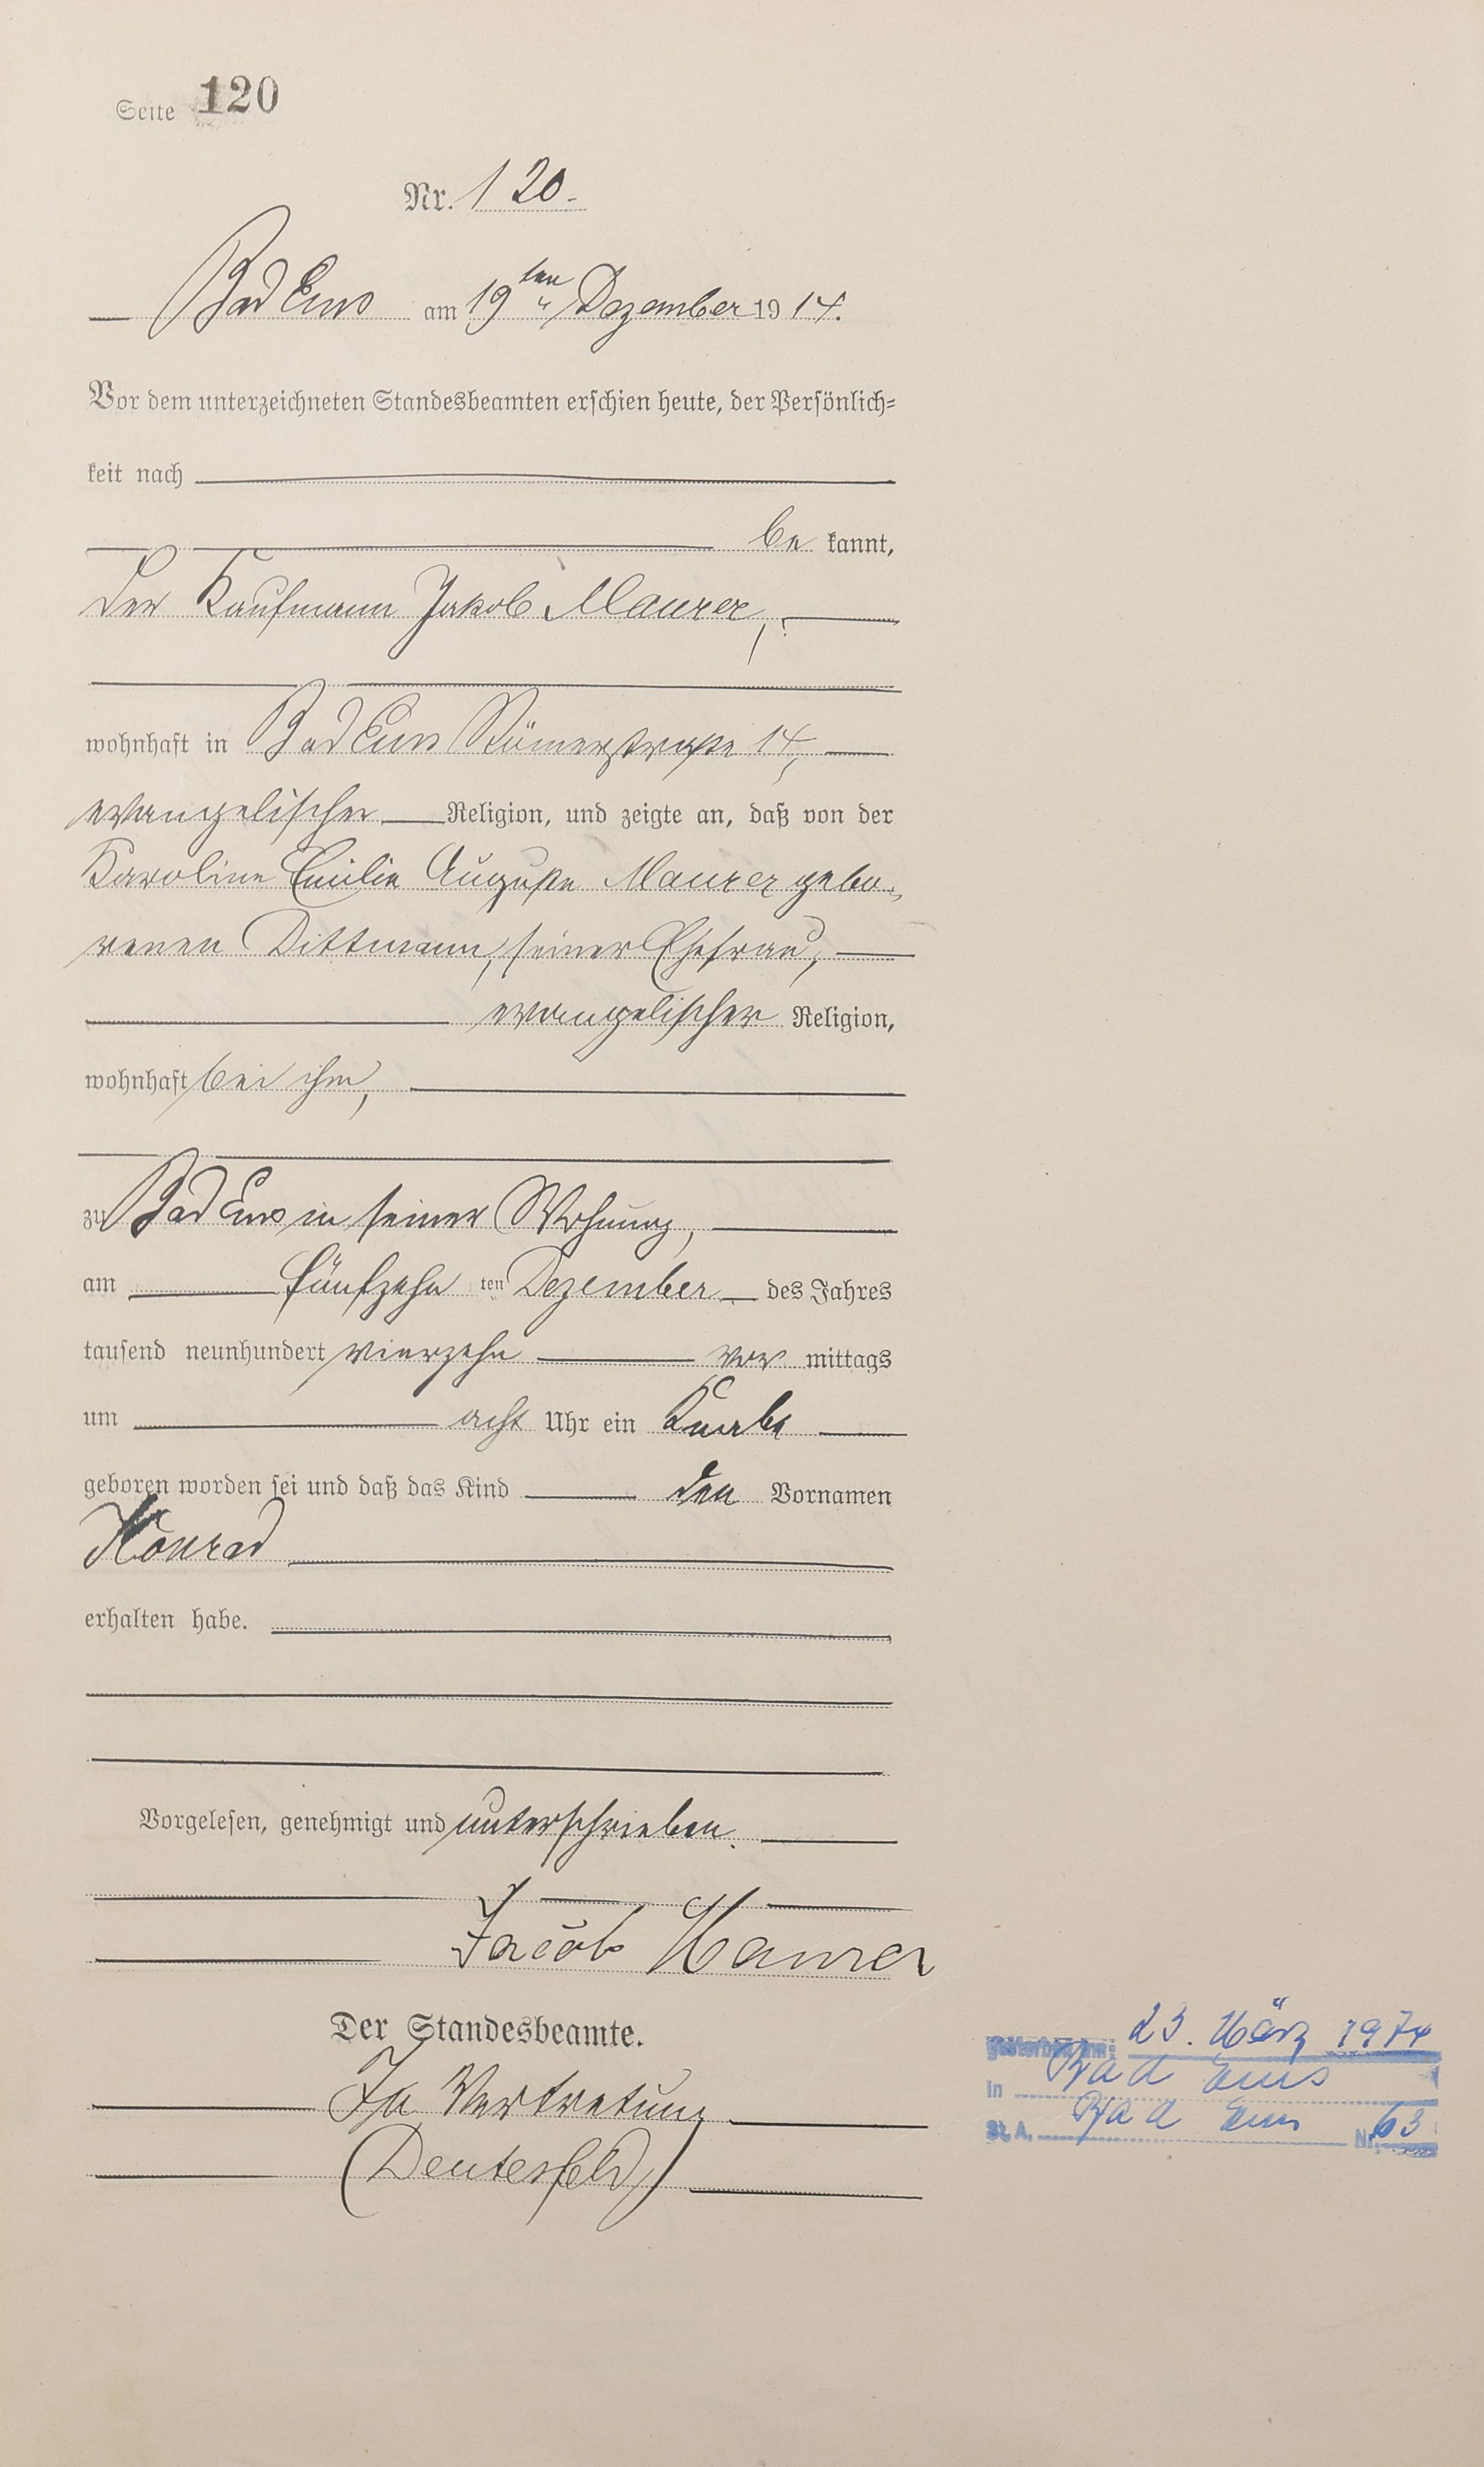 Seite 120
Nr. 120.
Bad Ems am 19ten Dezember 1914.
Vor dem unterzeichneten Standesbeamten erschien heute, der Persönlich=
keit nach
be kannt,
der Kaufmann Jakob Maurer,
wohnhaft in Bad Ems Römerstraße 14,
evangelischer Religion, und zeigte an, daß von der
Karoline Emilie Auguste Maurer gebo-
renen Dittmann, seiner Ehefrau,
evangelischer Religion,
wohnhaft bei ihm,
zu Bad Ems in seiner Wohnung,
am fünfzehn ten Dezember des Jahres
tausend neunhundert vierzehn vor mittags
um acht Uhr ein Knabe
geboren worden sei und daß das Kind den Vornamen
Konrad
erhalten habe.
Vorgelesen, genehmigt und unterschrieben.
Jacob Maurer
Der Standesbeamte.
In Vertretung
(Deutesfeld)
gestorben am: 23. März 1974
in Bad Ems
St. A. Bad Ems Nr. 63